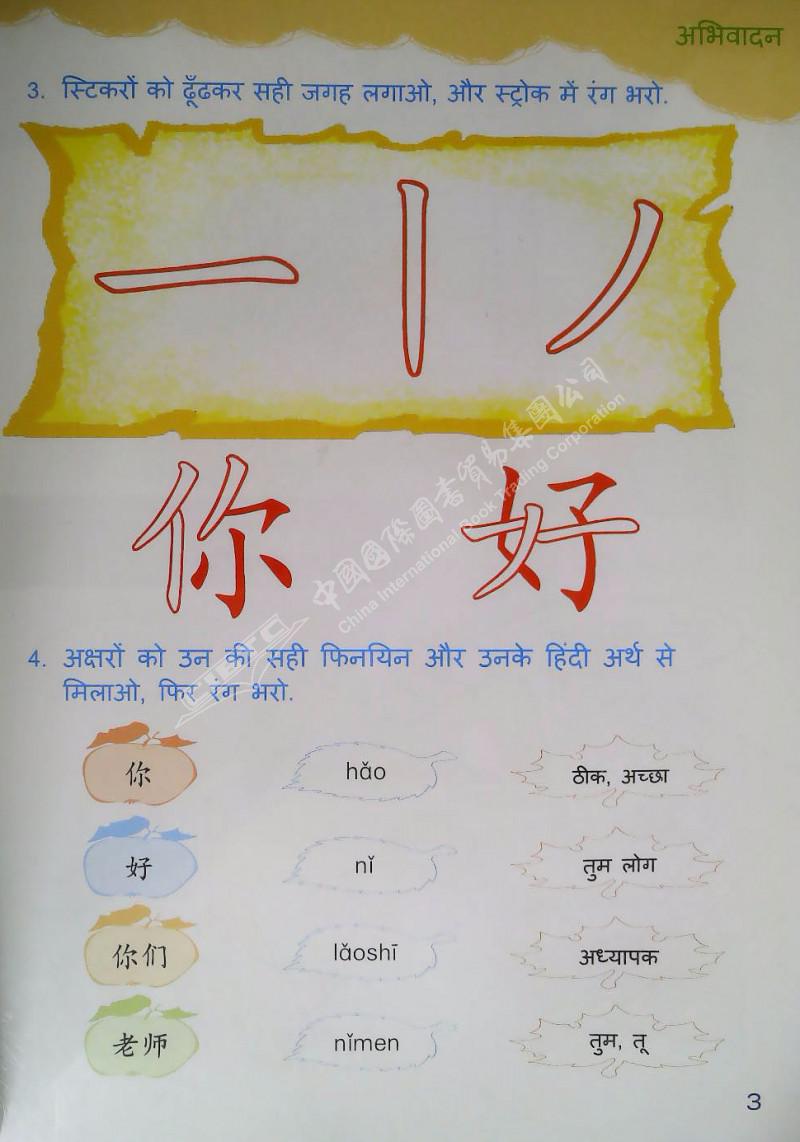 अभिवादन
3. स्टिकरों को ढूँढकर सही जगह लगाओ, और स्ट्रोक में रंग भरो.
一 丨 丿
你 好
中國國際圖書貿易集團公司
China International Book Trading Corporation
CIBTC
4. अक्षरों को उन की सही फिनयिन और उनके हिंदी अर्थ से
मिलाओ, फिर रंग भरो.
你 hǎo ठीक, अच्छा
好 nǐ तुम लोग
你们 lǎoshī अध्यापक
老师 nǐmen तुम, तू
3